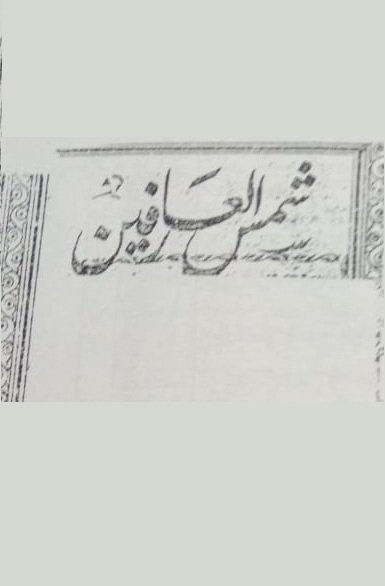 شمس العارفین